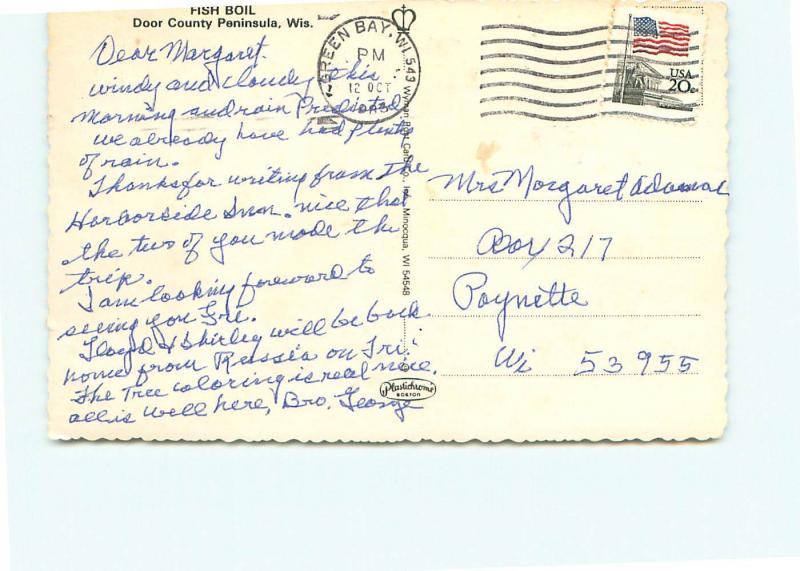 FISH BOIL
Door County Peninsula, Wis.
Dear Margaret.
windy and cloudy this
morning and rain Predicted
we already have had plenty
of rain.
Thanks for writing from The
Harborside Inn. nice that
the two of you made the
trip.
I am looking foreward to
seeing you Fri.
Floyd & Shirley will be back
home from Russia on Fri.
The Tree coloring is real nice.
all is well here, Bro. George
GREEN BAY, WI 543
PM
12 OCT
Plastichrome
BOSTON
USA
20c
Mrs Margaret
Box 217
Poynette
Wi 53955